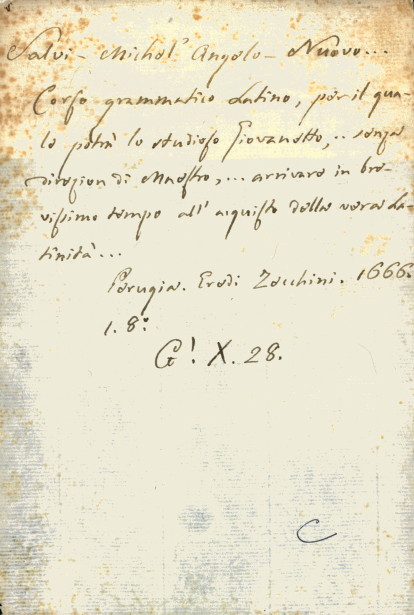 Salvi - Michel' Angelo - Nuovo...
Corso grammatico Latino, per il qua-
le potrà lo studioso Giovanetto,.. senza
direzion di Maestro,... arrivare in bre-
vissimo tempo all' acquisto della vera La-
tinità...
Perugia. Eredi Zecchini. 1666.
1. 8.°
G! X. 28.
C